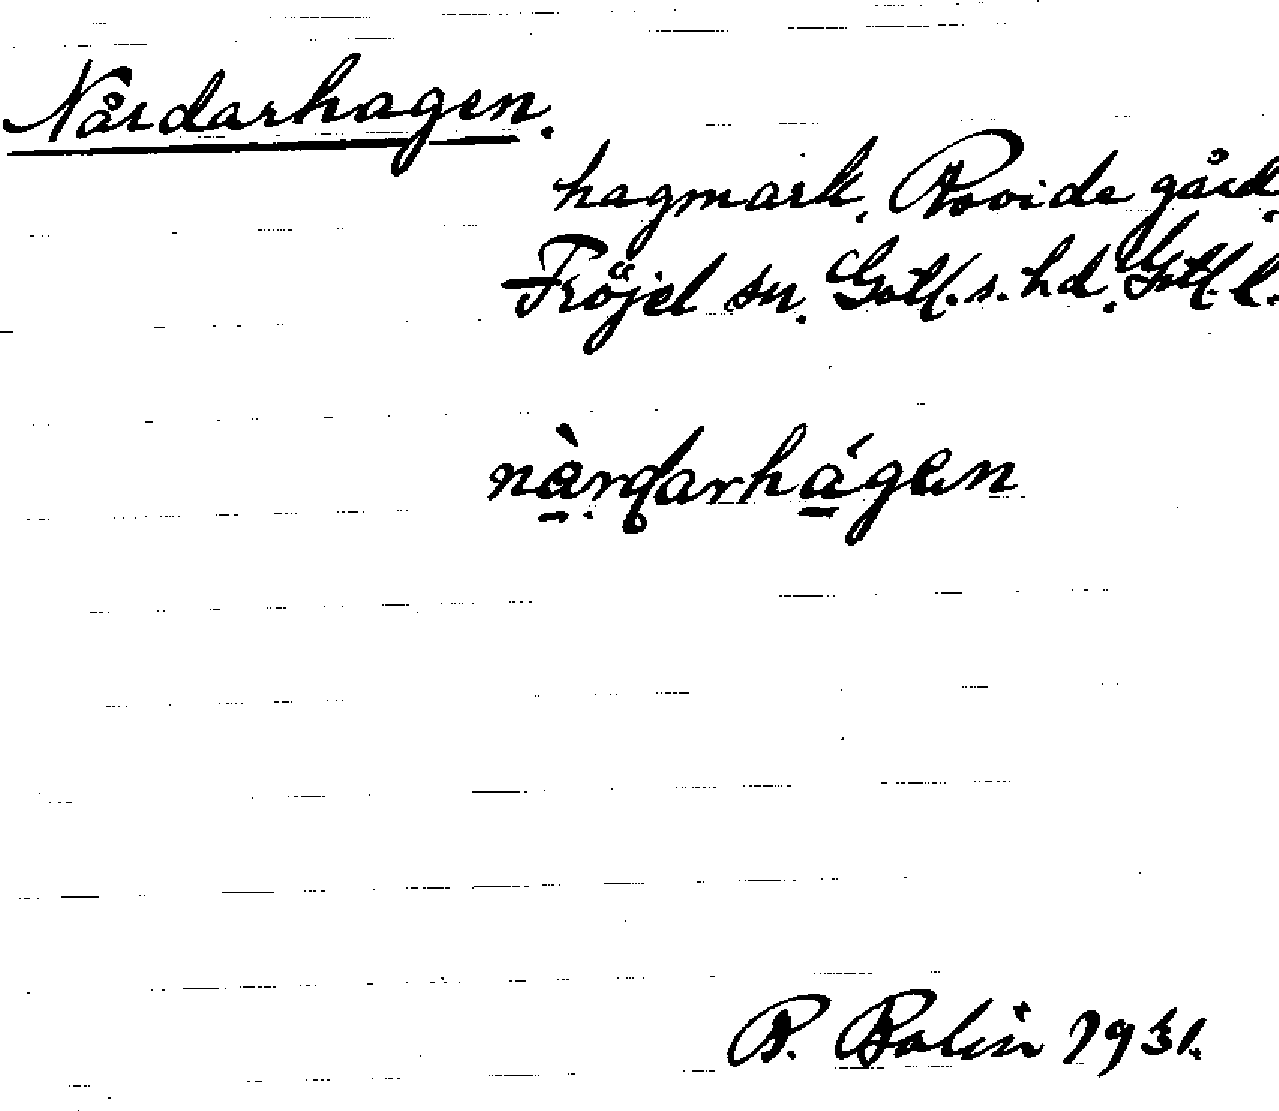 Nårdarhagen.
hagmark, Rovide gård,
Fröjel sn. Gotl. s. hd. Gotl. l.
nàrdarhágen